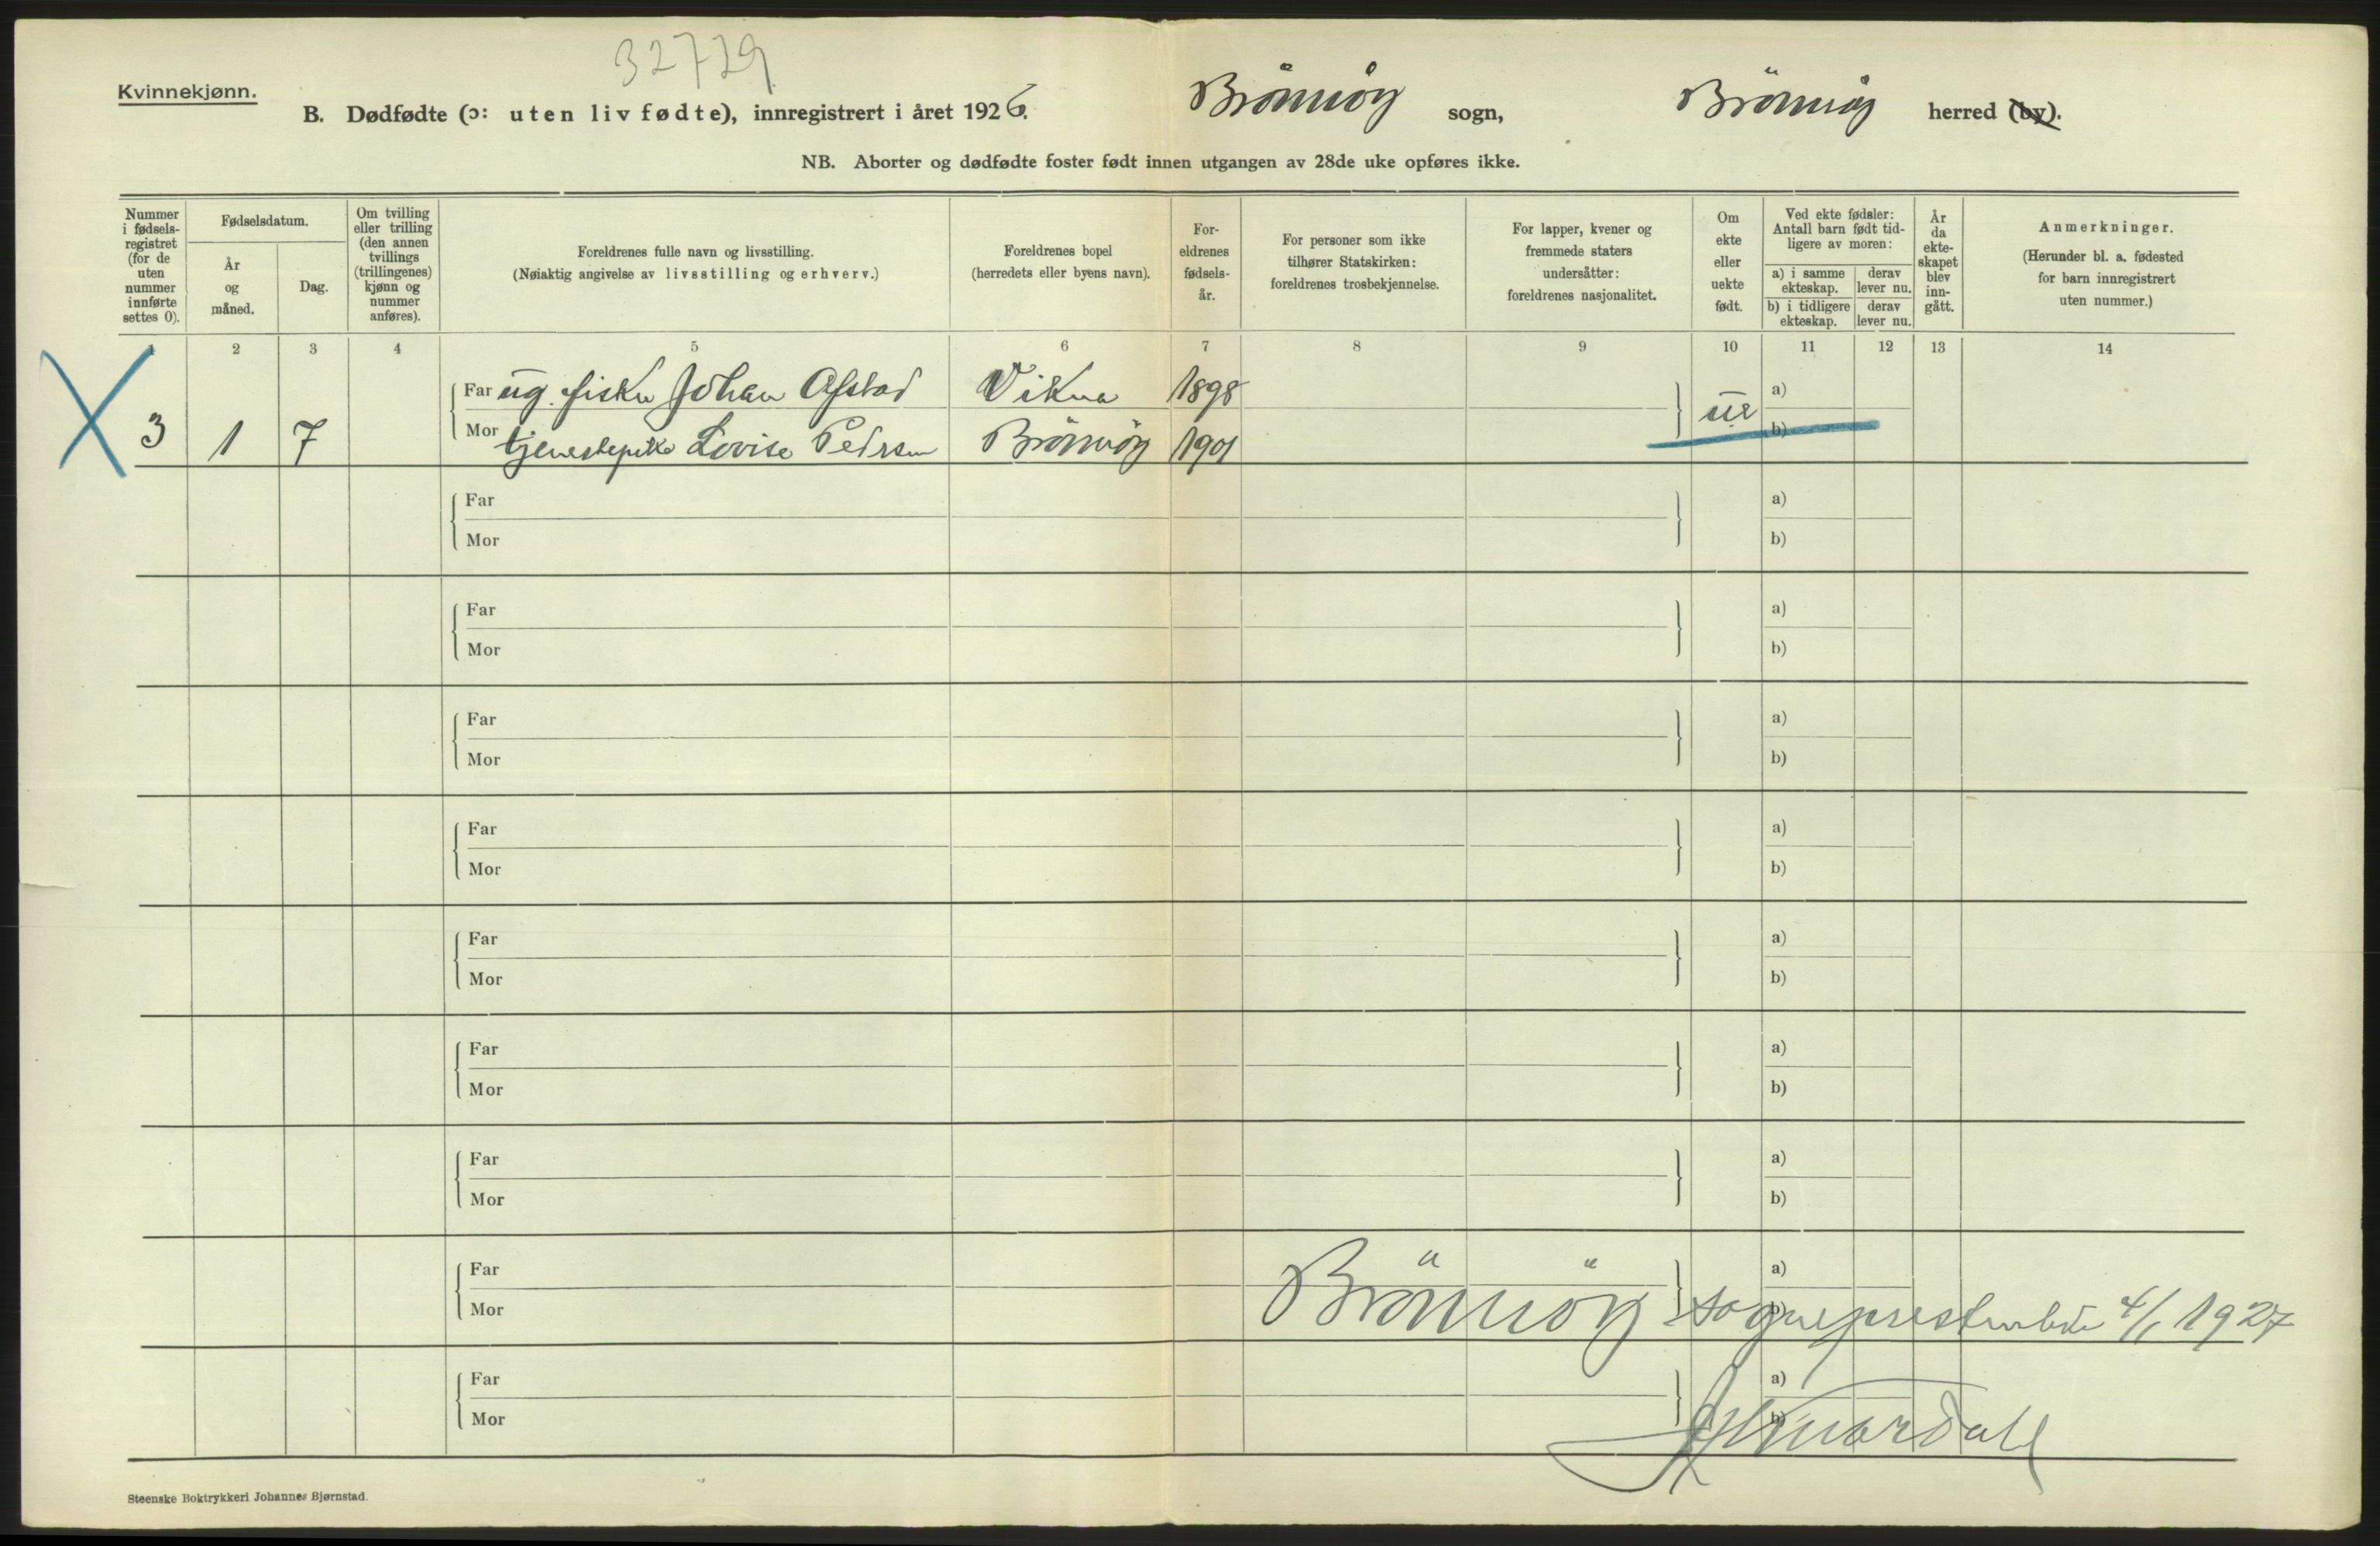 32729
Kvinnekjønn.
B. Dødfødte (ɔ: uten liv fødte), innregistrert i året 1926. Brönnöy sogn, Brönnöy herred (by).
NB. Aborter og dødfødte foster født innen utgangen av 28de uke opføres ikke.
Nummer i fødsels-registret (for de uten nummer innførte settes 0).
Fødselsdatum.
År og måned.
Dag.
Om tvilling eller trilling (den annen tvillings (trillingenes) kjønn og nummer anføres).
Foreldrenes fulle navn og livsstilling.
(Nøiaktig angivelse av livsstilling og erhverv.)
Foreldrenes bopel
(herredets eller byens navn).
For-eldrenes fødsels-år.
For personer som ikke tilhører Statskirken: foreldrenes trosbekjennelse.
For lapper, kvener og fremmede staters undersåtter: foreldrenes nasjonalitet.
Om ekte eller uekte født.
Ved ekte fødsler: Antall barn født tid-ligere av moren:
a) i samme ekteskap. derav lever nu.
b) i tidligere ekteskap. derav lever nu.
År da ekte-skapet blev inn-gått.
Anmerkninger.
(Herunder bl. a. fødested for barn innregistrert uten nummer.)
1 2 3 4 5 6 7 8 9 10 11 12 13 14
Far ug. fisker Johan Ofstad Vikna 1898 ue a)
3 1 7 Mor tjenestepike Lovise Pedersen Brönnöy 1901 b)
Far a)
Mor b)
Far a)
Mor b)
Far a)
Mor b)
Far a)
Mor b)
Far a)
Mor b)
Far a)
Mor b)
Far a)
Mor b)
Far a)
Mor b)
Brönnöy sogneprestembede 4/1 1927
Far a)
Mor b)
Steenske Boktrykkeri Johannes Bjørnstad.